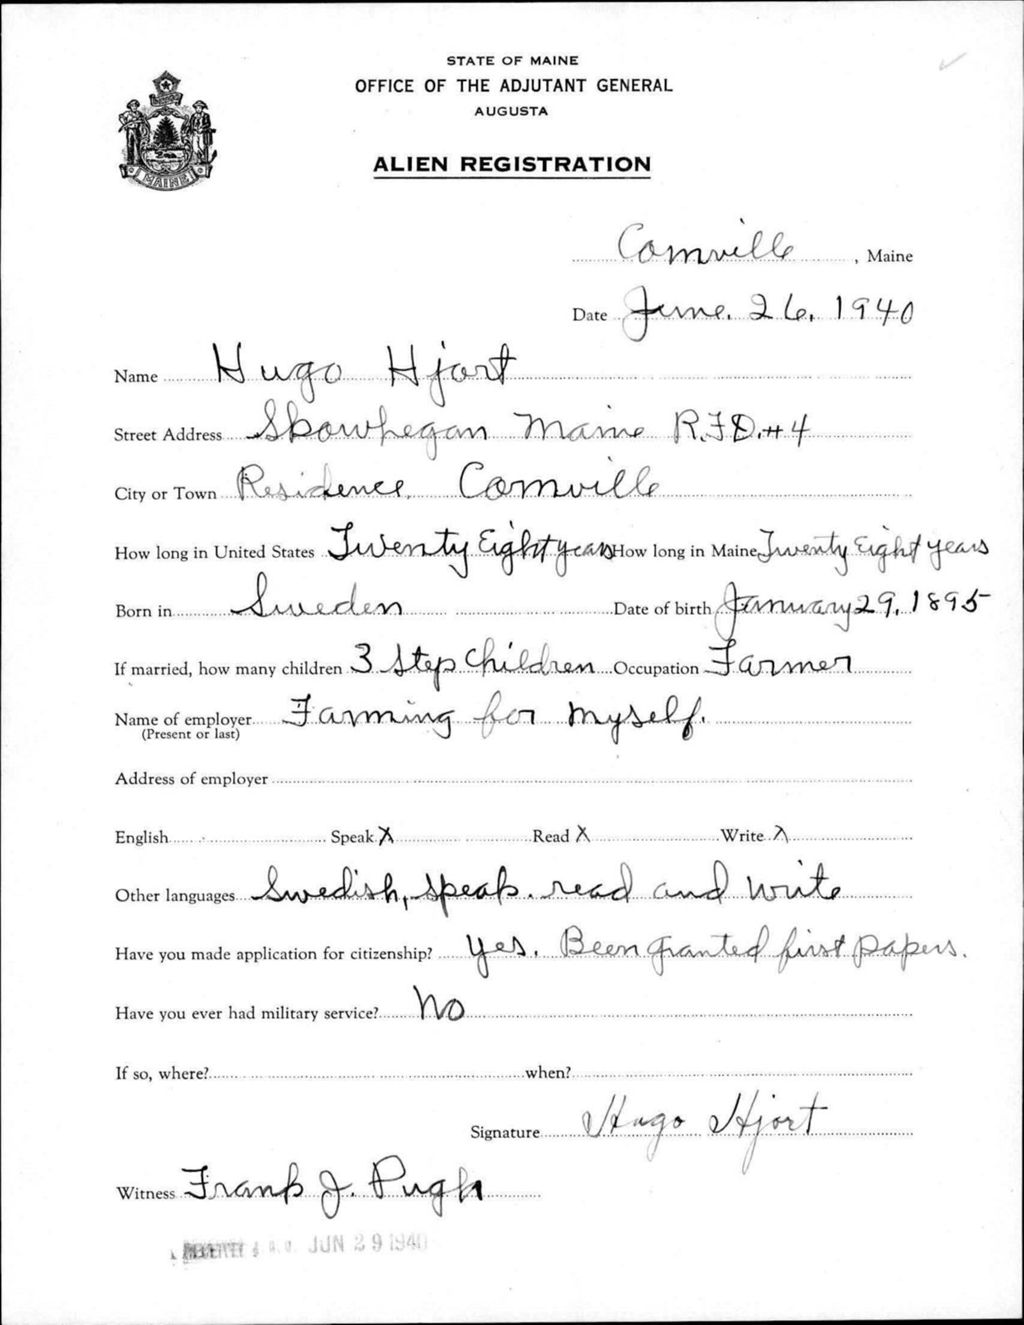 STATE OF MAINE
OFFICE OF THE ADJUTANT GENERAL
AUGUSTA
ALIEN REGISTRATION
MAINE
Cornville, Maine
Date June. 26. 1940
Name Hugo Hjort
Street Address Skowhegan Maine R.F.D. #4
City or Town Residence. Cornville
How long in United States Twenty Eight years How long in Maine Twenty Eight years
Born in Sweden Date of birth January 29, 1895
If married, how many children 3 Step Children Occupation Farmer
Name of employer Farming for myself.
(Present or last)
Address of employer
English Speak X Read X Write X
Other languages Swedish, speak. read and write
Have you made application for citizenship? Yes. Been granted first papers.
Have you ever had military service? No
If so, where? when?
Signature Hugo Hjort
Witness Frank J. Pugh
JUN 29 1940